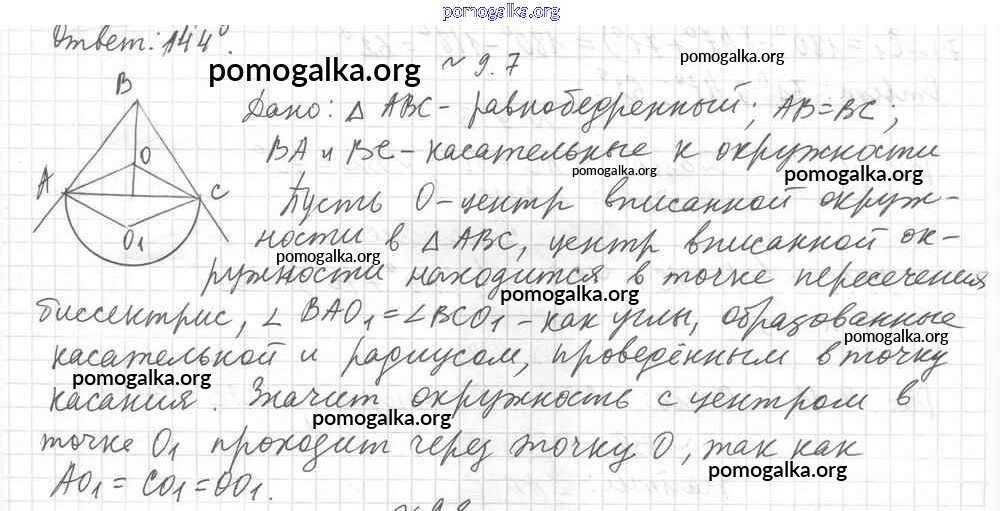 pomogalka.org
Ответ: 144°.
pomogalka.org
pomogalka.org
№ 9.7
B
Дано: △ ABC - равнобедренный; AB=BC;
BA и BC - касательные к окружности
pomogalka.org
pomogalka.org
O
A
C
O1
Пусть O - центр вписанной окруж-
ности в △ ABC, центр вписанной ок-
pomogalka.org
ружности находится в точке пересечения
pomogalka.org
биссектрис, ∠ BAO1 = ∠BCO1 - как углы, образованные
pomogalka.org
касательной и радиусом, проведённым в точку
pomogalka.org
касания. Значит окружность с центром в
pomogalka.org
точке O1 проходит через точку O, так как
pomogalka.org
AO1 = CO1 = OO1.